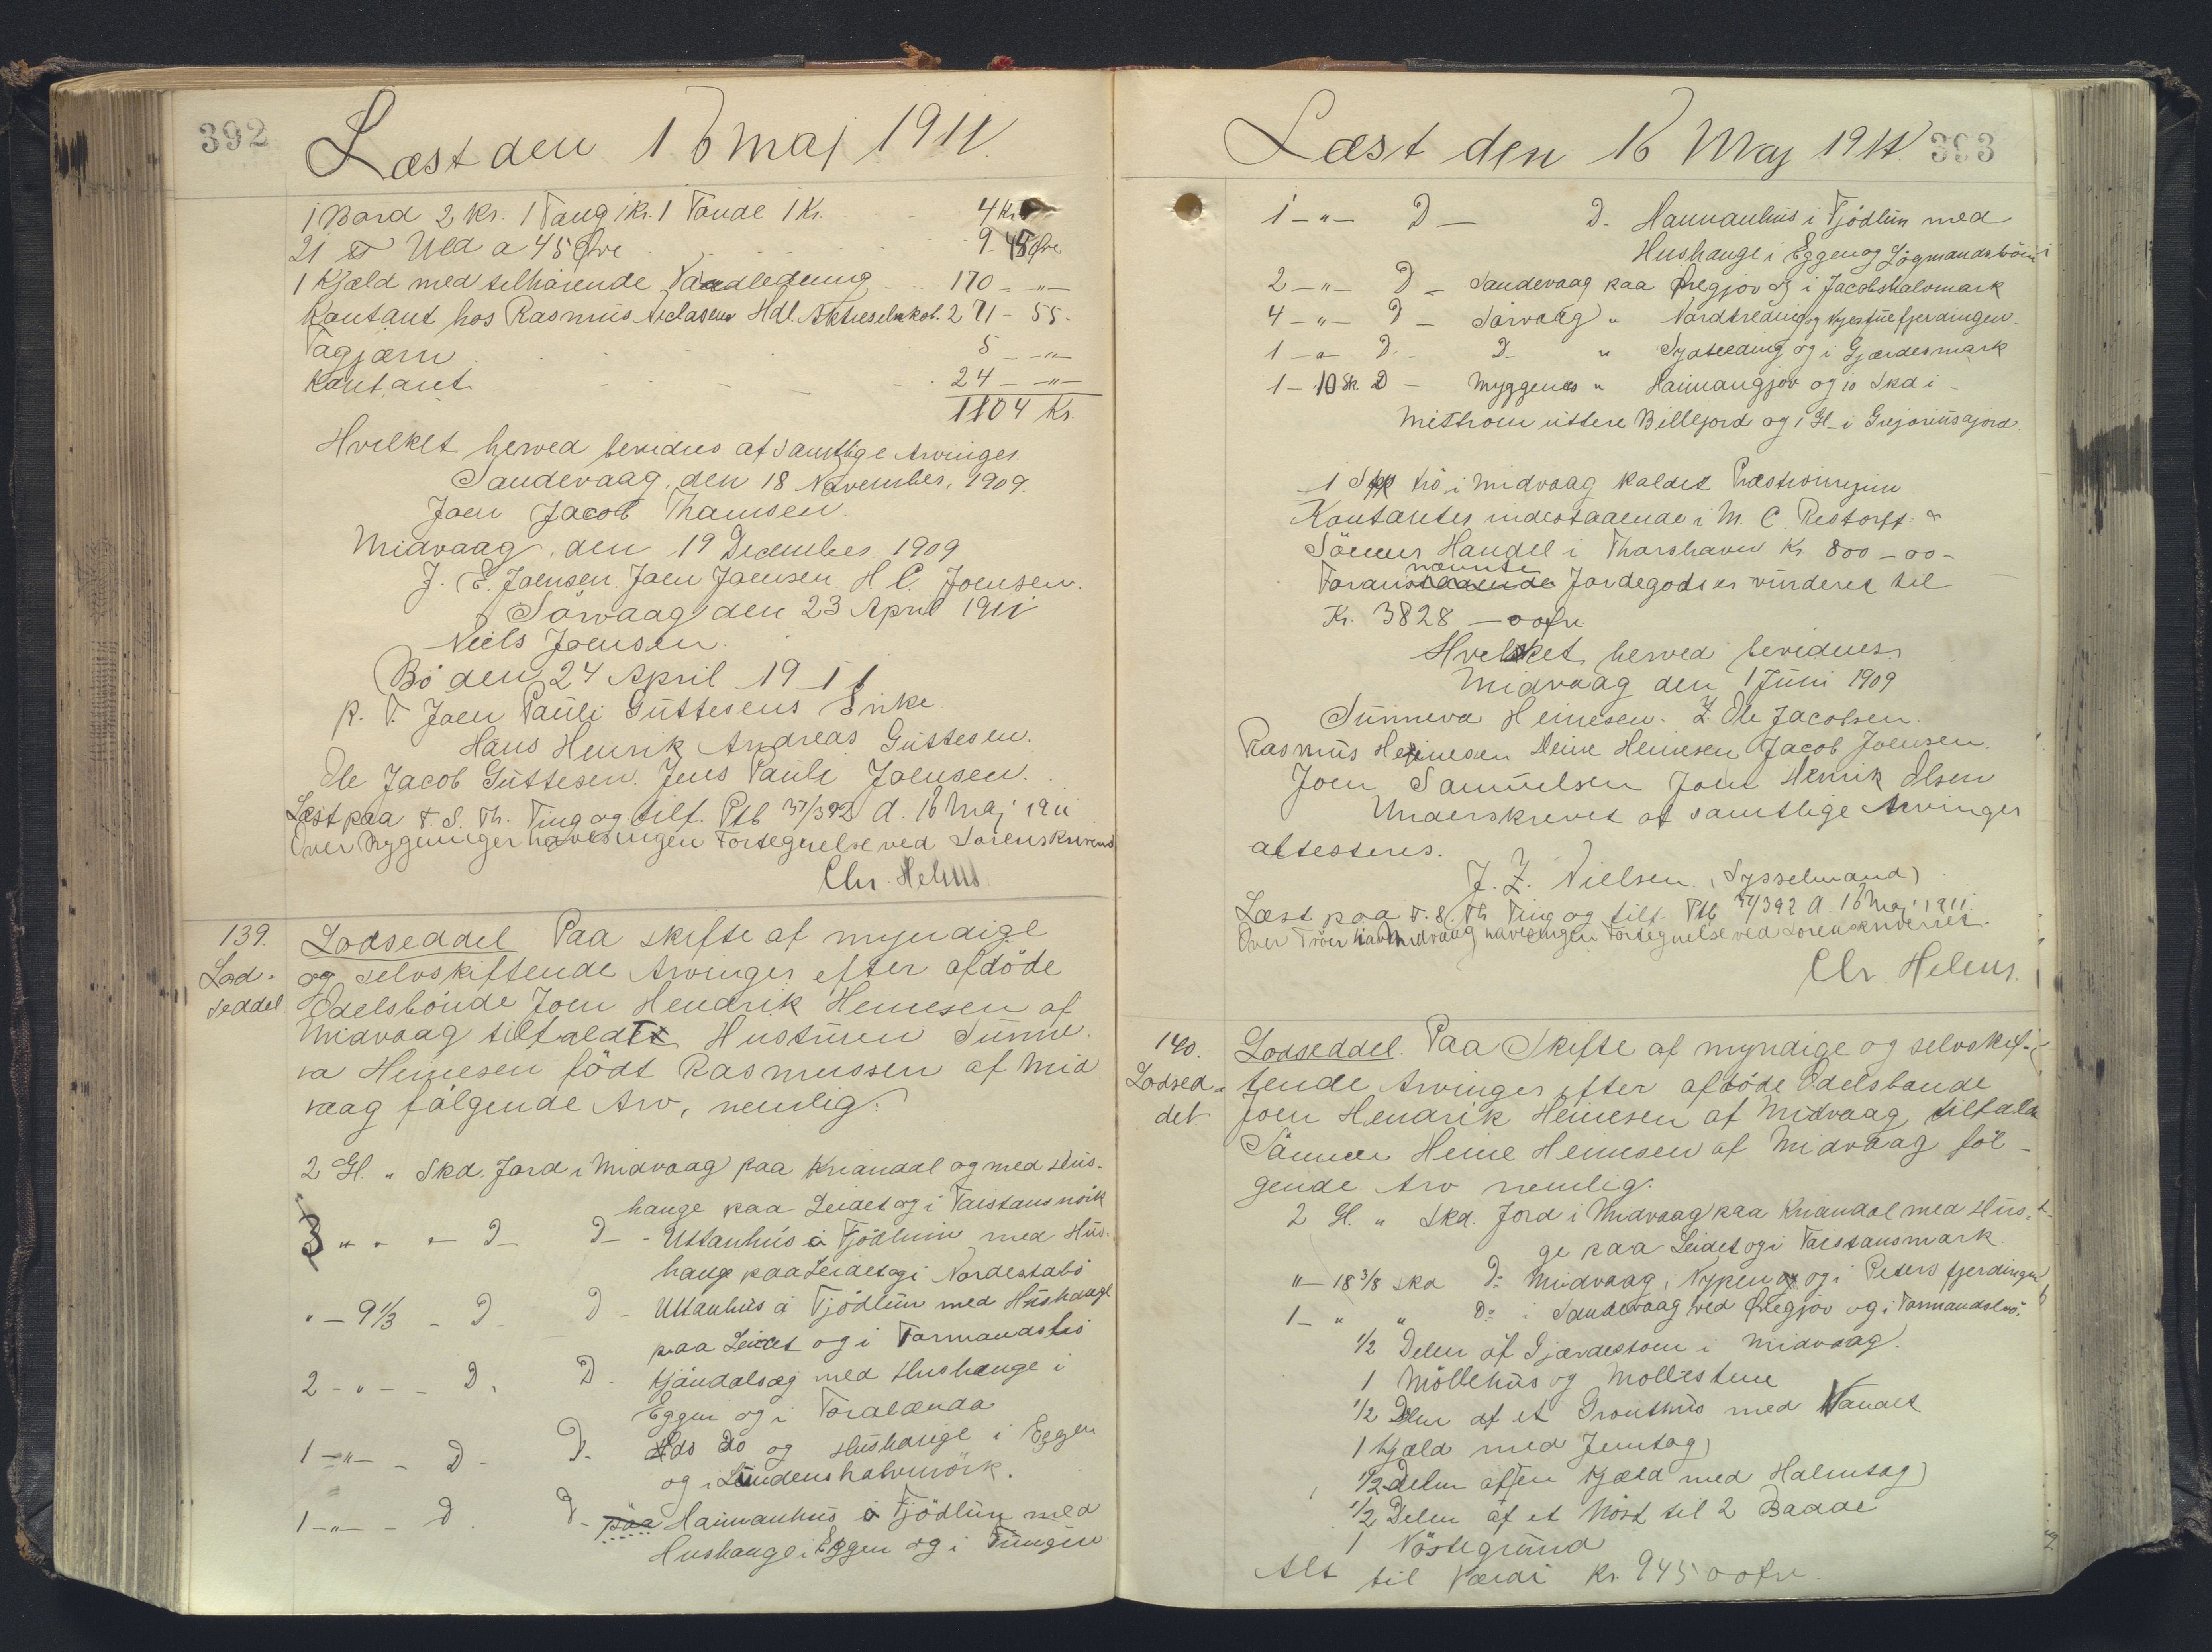 392
Læst den 16 Maj 1911.
1 Bord 2 Kr. 1 Tang 1 Kr. 1 Tönde 1 Kr. 4 Kr
21 ℔ Uld a 45 Øre 9. 45 Øre
1 Kjæld med tilhörende Vandledning 170 - " -
Kontant hos Rasmus Niclasens Hdl. Aktieselskab. 271 - 55 -
Tagjærn 5 - " -
Kontant 24 - " -
1104 Kr.
Hvilket herved bevidnes af samtlige Arvinger.
Sandevaag, den 18 November, 1909.
Joen Jacob Thomsen.
Midvaag, den 19 December 1909
J. E. Joensen. Joen Joensen. H C. Joensen.
Sörvaag den 23 April 1911
Niels Joensen.
Bö den 24 April 1911
p. t. Joen Pauli Guttesens Enke
Hans Henrik Andreas Guttesen.
Ole Jacob Guttesen. Jens Pauli Joensen.
Læst paa F. S. Th. Ting og tilf. Ptb 37/392 d. 16 Maj 1911
Over Bygninger haves ingen Fortegnelse ved Sorenskriveri
Chr. Helms
139. Lodseddel Paa skifte af myndige
Lod- og selvskiftende Arvinger efter afdöde
seddel Odelsbonde Joen Hendrik Heinesen af
Midvaag tilfaldt Hustruen Sunne-
va Heinesen födt Rasmussen af Mid
vaag fölgende Arv, nemlig:
2 Gl. " Skd. Jord i Midvaag paa Kriandal og med Hus-
hauge paa Leidet og i Taistansmörk
3 " - - D - D - Uttanhus á Fjödlum med Hus-
hauge paa Leidet og i Nordestabö
" - 9 1/3 - D - D - Uttanhus á Fjödlun med Hushauge
paa Leidet og i Tormandsbö
2 - " - - D. D - Kjåndalsæg med Hushauge i
Eggen og i Toralænda
1 - " - - D - D. do do og Hushauge i Eggen
og i Lundenshalvmörk.
1 - " - - D D - paa Haimanhus á Fjödlun med
Hushauge i Eggen og i Tungen
Læst den 16 Maj 1911. 393
1 - " - D - D. Haimanhus i Fjödlun med
Hushauge i Eggen og Lögmandsböen
2 - " - D - Sandevaag paa Öregjov og i Jacobshalvmark
4 - " - D - Sörvaag " Nordtreding og Nyestuefjerdingen
1 - " - D. - D - " Sydtreding og i Gjærdesmark
1 - 10 Sk. D - Myggenæs " Haimangjov og 10 Skd i
Mittrom uttere Billejord og 1 Gl - i Grejoriusajord.
1 Stk trö i Midvaag kaldet Præstroingjun
Kontantes indestaaende i M. C. Restorff &
Sönners Handel i Thorshavn Kr. 800 - 00 -
nævnte
Foranstaaende Jordegods er vurderet til
Kr. 3828 - 00 Øre
Hvilket herved bevidnes.
Midvaag den 1 Juni 1909
Sunneva Heinesen. Z. Ole Jacobsen.
Rasmus Heinesen Heine Heinesen Jacob Joensen.
Joen Samuelsen Joen Henrik Olsen
Underskrevet af samtlige Arvinger
attesteres.
J. Z. Nielsen. (Sysselmand)
Læst paa F. S. Th Ting og tilf. Ptb 37/392 d. 16 Maj 1911.
Over Tröer i Midvaag haves ingen Fortegnelse ved Sorenskriveriet.
Chr. Helms.
140. Lodseddel. Paa Skifte af myndige og selvskif-
Lodsed- tende Arvinger efter afdöde Odelsbonde
del. Joen Hendrik Heinesen af Midvaag tilfaldt
Sönnen Heine Heinesen af Midvaag föl-
gende Arv nemlig:
2 Gl. " Skd. Jord i Midvaag paa Kriandal med Hus-
ge paa Leidet og i Taistansmark.
" - 18 3/8 Skd D: Midvaag i Nypen og i Peters fjerdingen
1 - " " D: i Sandevaag ved Öregjov og i Tormandsbö.
1/2 Delen af Gjærdestom i Midvaag.
1 Möllehus og Möllestene
1/2 Delen af et Grouthus med Vandet
1 Kjæld med Jerntag
1/2 Delen af en Kjæld med Halmtag
1/2 Delen af et Nöst til 2 Baade
1 Nöstegrund
Alt til Værdi Kr. 945 00 Øre.